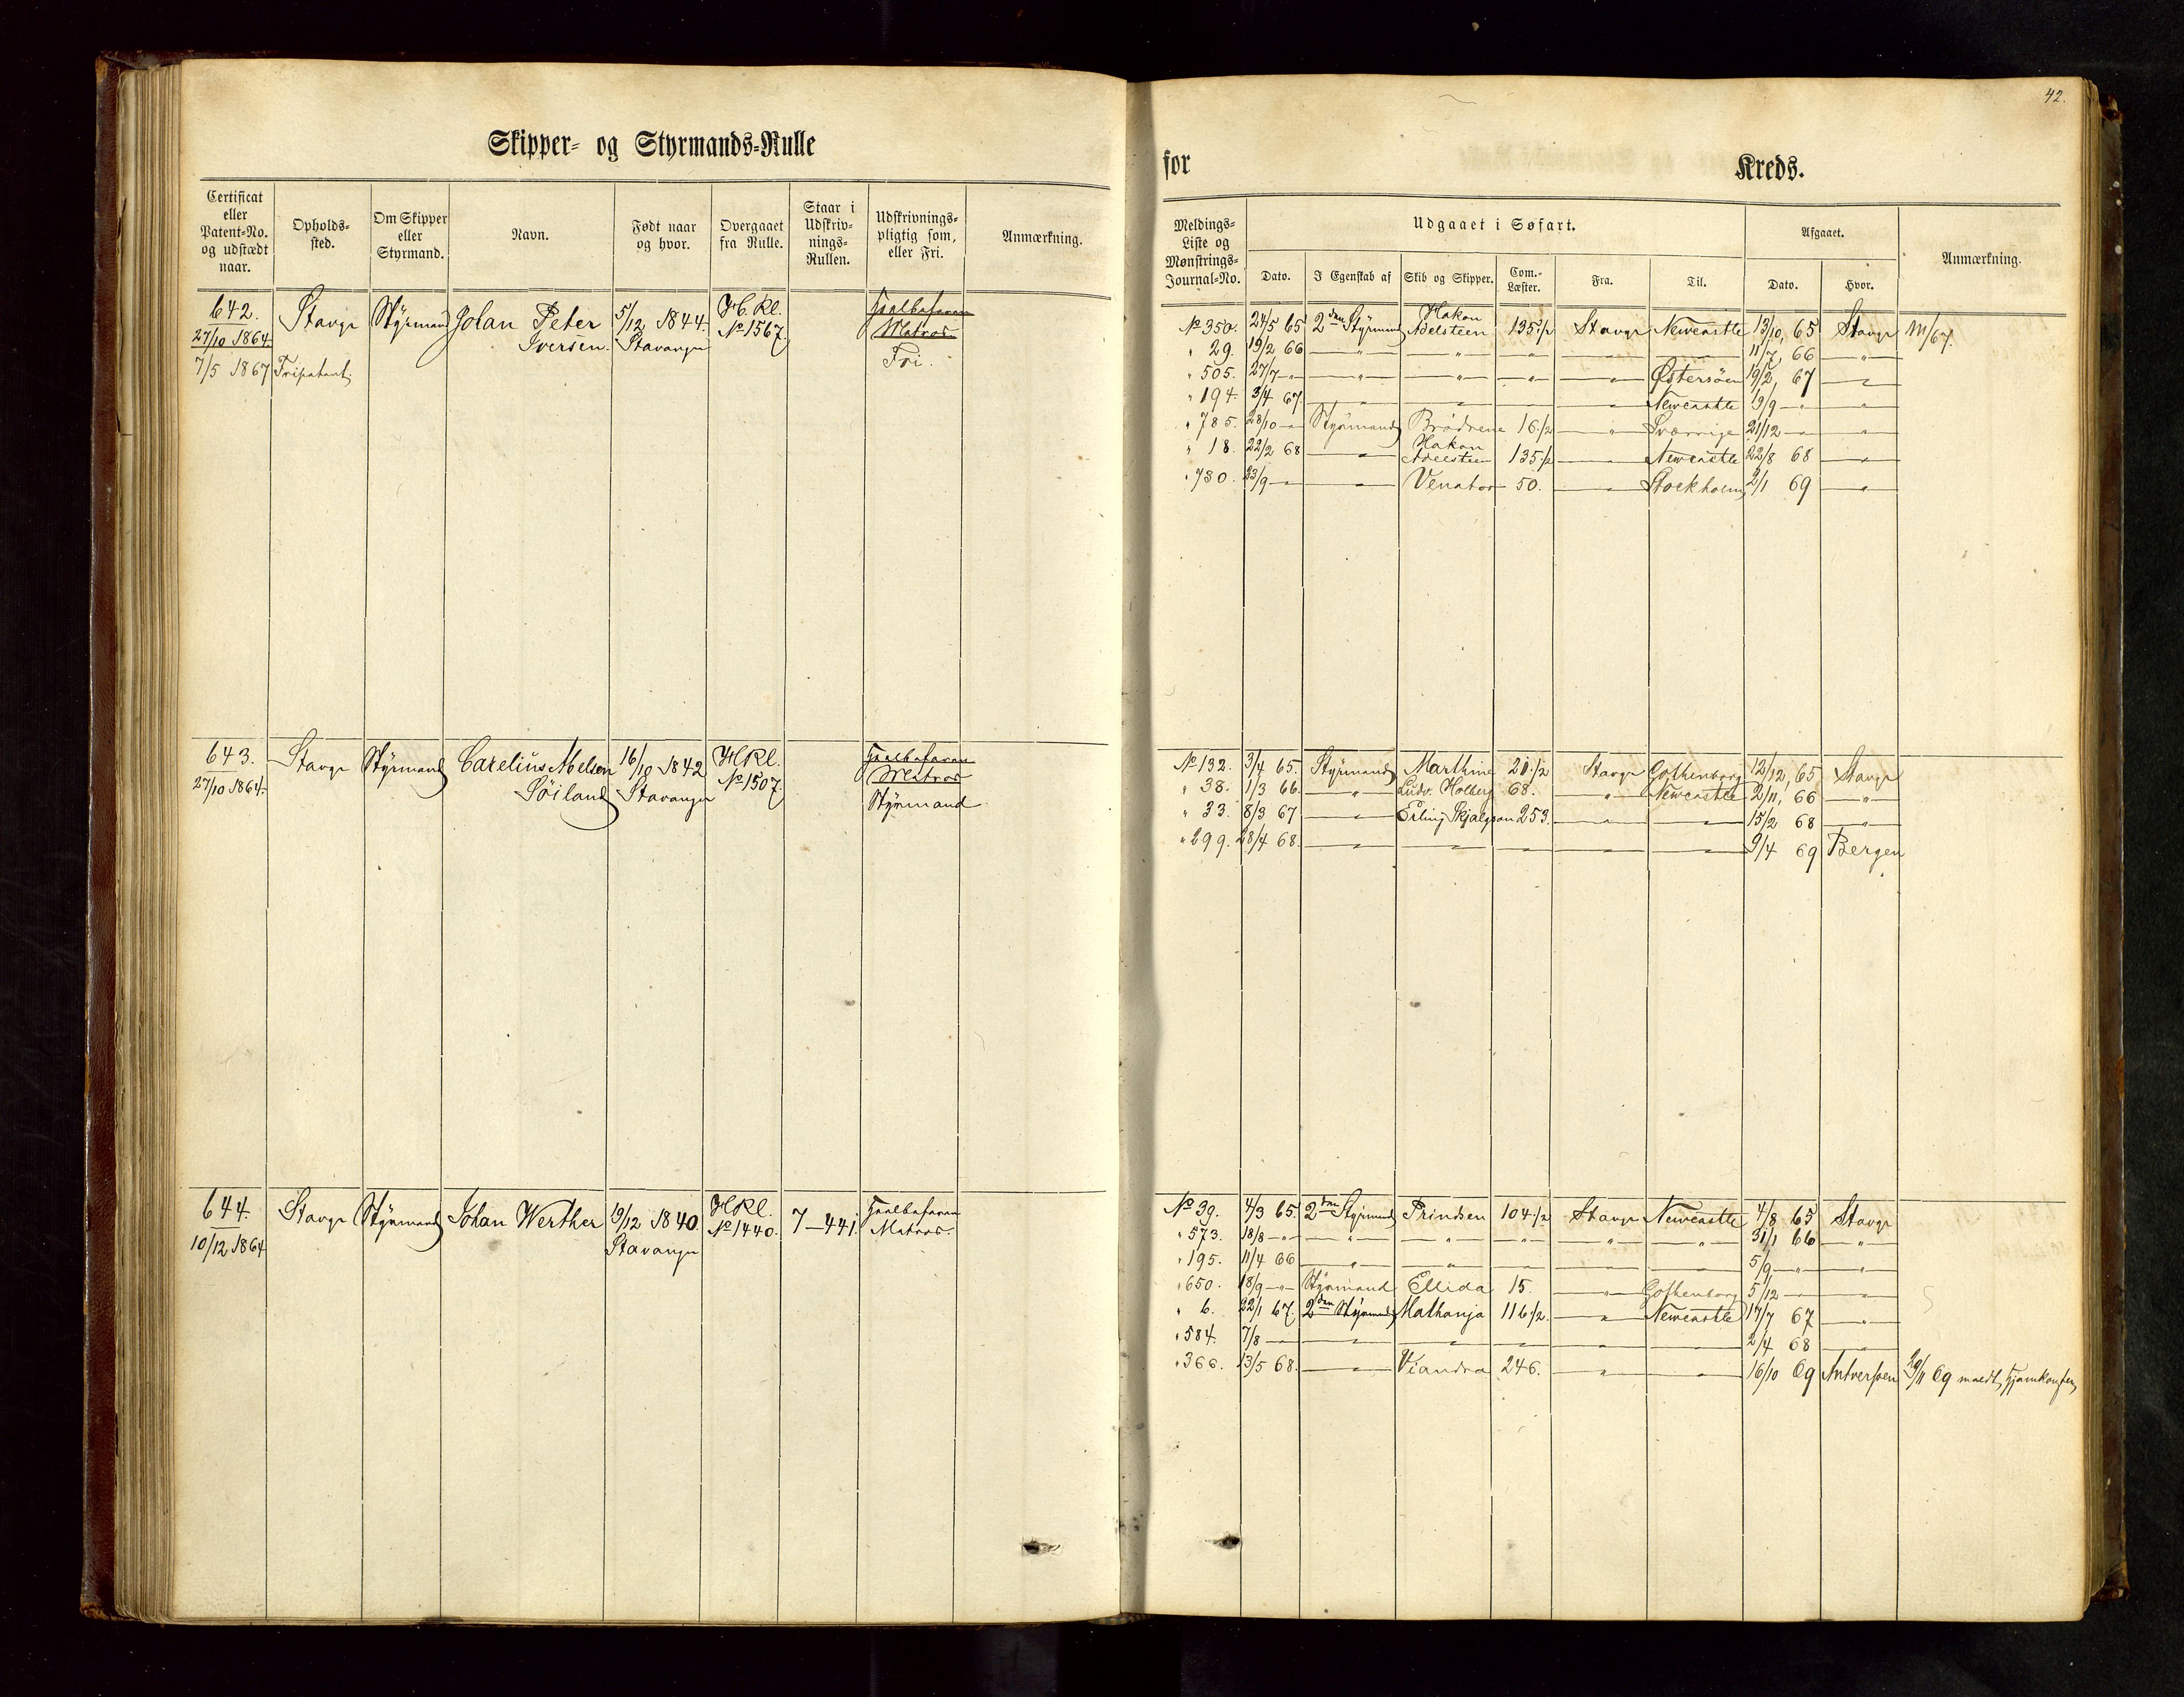 42.
Skipper- og Styrmands-Rulle
for Kreds.
Certificat eller Patent-No. og udstædt naar.
Opholds-sted.
Om Skipper eller Styrmand.
Navn.
Født naar og hvor.
Overgaaet fra Rulle.
Staar i Udskriv-nings-Rullen.
Udskrivnings-pligtig som, eller Fri.
Anmærkning.
Meldings-Liste og Mønstrings-Journal-No.
Udgaaet i Søfart.
Dato.
I Egenskab af
Skib og Skipper.
Com.-Læster.
Fra.
Til.
Afgaaet.
Dato.
Hvor.
Anmærkning.
642. Stavgr Styrmand Johan Peter 5/12 1844. H.Kl.
27/10 1864 Iversen. Stavanger No 1567. Matros
7/5 1867 Fripatent. Fri.
No 350. 24/5 65 2den Styrmand Hakon Adelsteen 135 1/2 Stavgr Newcastle 13/10, 65 Stavgr M/67.
" 29. 19/2 66 — " — — " — — " — — — 11/7, 66 — " —
" 505. 27/7 - " — " — — " — — " — — " — Østersöen 19/2, 67 — " —
" 194. 3/4 67. — " — — " — — " — — " — Newcastle 19/9 - " — " —
" 785. 28/10 - " Styrmand Brödrene 16 1/2 — " — Sverrige 21/12 - — " —
" 18. 22/2 68 — " — Hakon Adelsteen 135 1/2 — " — Newcastle 22/8 68 — " —
" 730. 23/9 - " — " — Venator 50. — " — Stockholm 2/1 69 — " —
643. Stavgr Styrmand Carelius Abelsen 16/10 1842 HKl.
27/10 1864. Söiland Stavanger No 1507. Matros
Styrmand
No 132. 3/4 65. Styrmand Marthine 21 1/2 Stavgr Gothenborg 12/12, 65 Stavgr
" 38. 1/3 66. — " — Ludv. Holberg 68. — " — Newcastle 2/11, 66 — " —
" 33. 8/3 67 — " — Erling Skjalgson 253. — " — — " — 15/2 68 — " —
" 299. 28/4 68. — " — — " — — " — — " — — " — 9/4 69 Bergen
644. Stavgr Styrmand Johan Werther 19/12 1840. HKl. 7 — 441.
10/12 1864 Stavanger No 1440. Matros.
No 39. 4/3 65. 2den Styrmand Prindsen 104 1/2 Stavgr Newcastle 4/8 65 Stavgr
" 573. 18/8 - " - — " — — " — — " — — " — — " — 31/1 66 — " —
" 195. 11/4 66 — " — — " — — " — — " — — " — 5/9 - " - — " —
" 650. 18/9 - " - Styrmand Ellida 15. — " — Gothenborg 5/12 - — " —
" 6. 22/1 67. 2den Styrmand Mathanja 116 1/2. — " — Newcastle 17/7 67 — " —
" 584. 7/8 — — " — — " — — " — — " — — " — 2/4 68 — " —
" 366. 13/5 68. — " — Viandra 246. — " — — " — 16/10 69 Antverpen 29/11 69 meldt Hjemkomsten